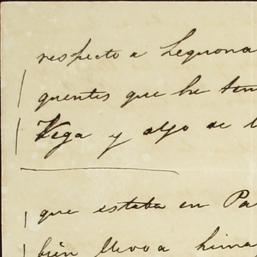 respecto a Lequona
quentes que he ten
Vega y algo de l
que estaba en Pa
bien llevo a